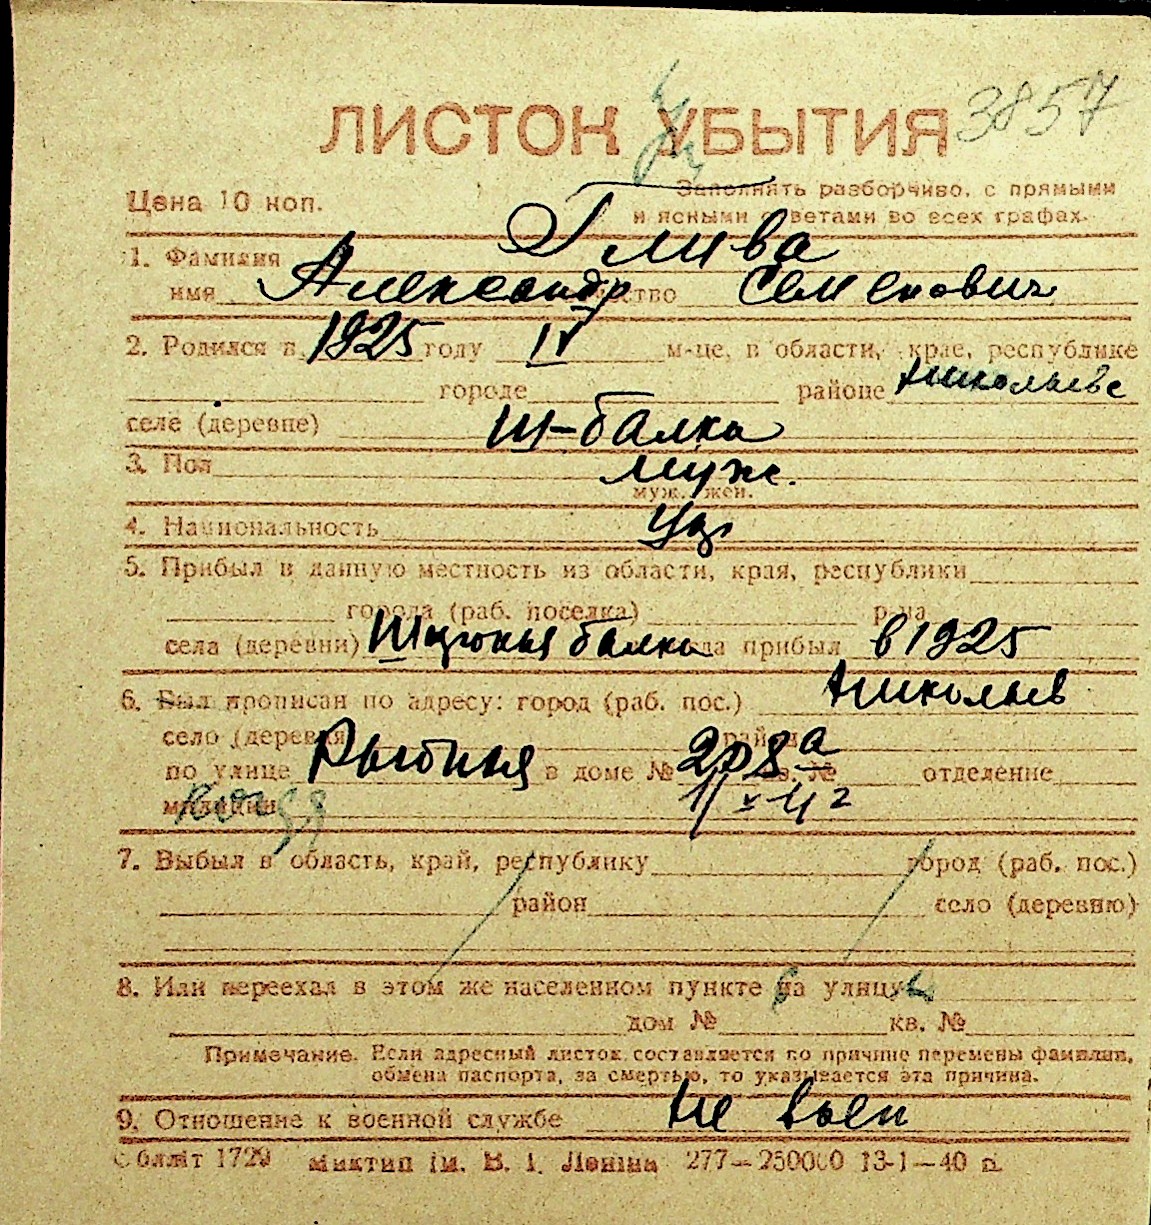 ЛИСТОК УБЫТИЯ 3857
Цена 10 коп.
Заполнять разборчиво, с прямыми
и ясными ответами во всех графах.
1. Фамилия Глива
имя Александр отчество Семенович
2. Родился в 1925 году IV м-це, в области, крае, республике
городе районе Николаеве
селе (деревне) Ш-балка
3. Пол муж.
муж. жен.
4. Национальность
5. Прибыл в данную местность из области, края, республики
города (раб. поселка) р-на
села (деревни) балка когда прибыл в 1925
6. Был прописан по адресу: город (раб. пос.) Николаев
село (деревня) район
по улице в доме № кв. № отделение
милиции
7. Выбыл в область, край, республику город (раб. пос.)
район село (деревню)
8. Или переехал в этом же населенном пункте на улицу
дом № кв. №
Примечание. Если адресный листок составляется по причине перемены фамилии,
обмена паспорта, за смертью, то указывается эта причина.
9. Отношение к военной службе не воен
Обллiт 1729 Миктип iм. В. I. Ленiна 277—250000 13-1—40 р.